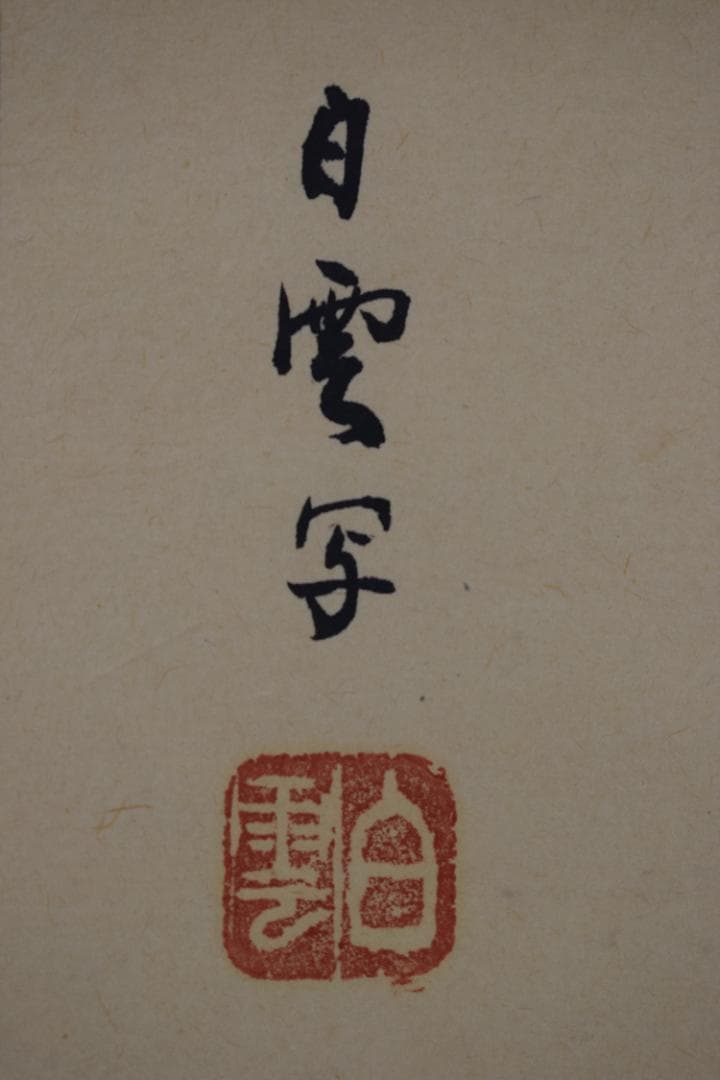 白雲写
白雲